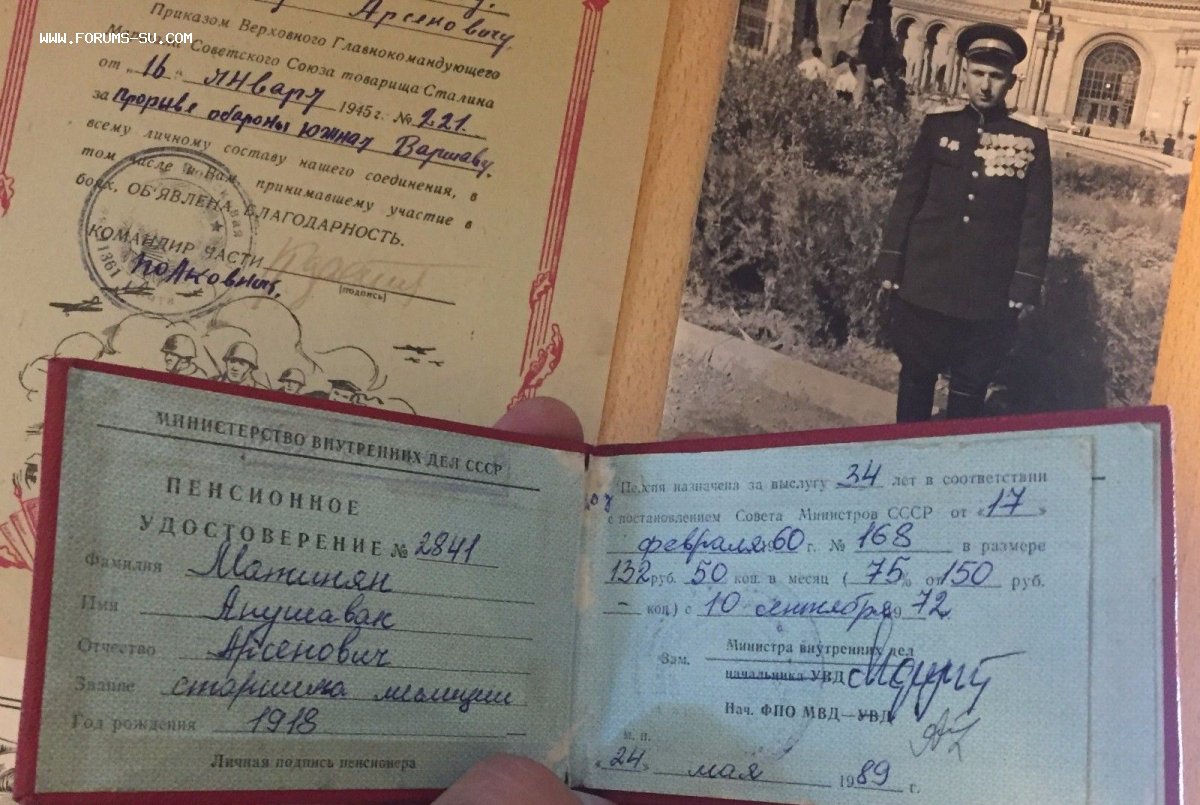 www.forums-su.com
Арсеновичу
Приказом Верховного Главнокомандующего
Советского Союза товарища Сталина
от „16“ январу 1945 г. № 221.
за прорыве обароны южнау Варшаву.
всему личному составу нашего соединения, в
том числе и Вам, принимавшему участие в
боях, ОБ'ЯВЛЕНА БЛАГОДАРНОСТЬ.
КОМАНДИР ЧАСТИ
полковник.
(подпись)
МИНИСТЕРСТВО ВНУТРЕННИХ ДЕЛ СССР
ПЕНСИОННОЕ
УДОСТОВЕРЕНИЕ № 2841
Фамилия Матинян
Имя Анушаван
Отчество Арсенович
Звание старшина милиции
Год рождения 1918
Личная подпись пенсионера
Пенсия назначена за выслугу 34 лет в соответствии
с постановлением Совета Министров СССР от «17»
февраля 1960 г. № 168 в размере
132 руб. 50 коп. в месяц (75% от 150 руб.
– коп.) с 10 сентября 1972
Зам. Министра внутренних дел
начальника УВД
Нач. ФПО МВД—УВД
м. п.
«24» мая 1989 г.